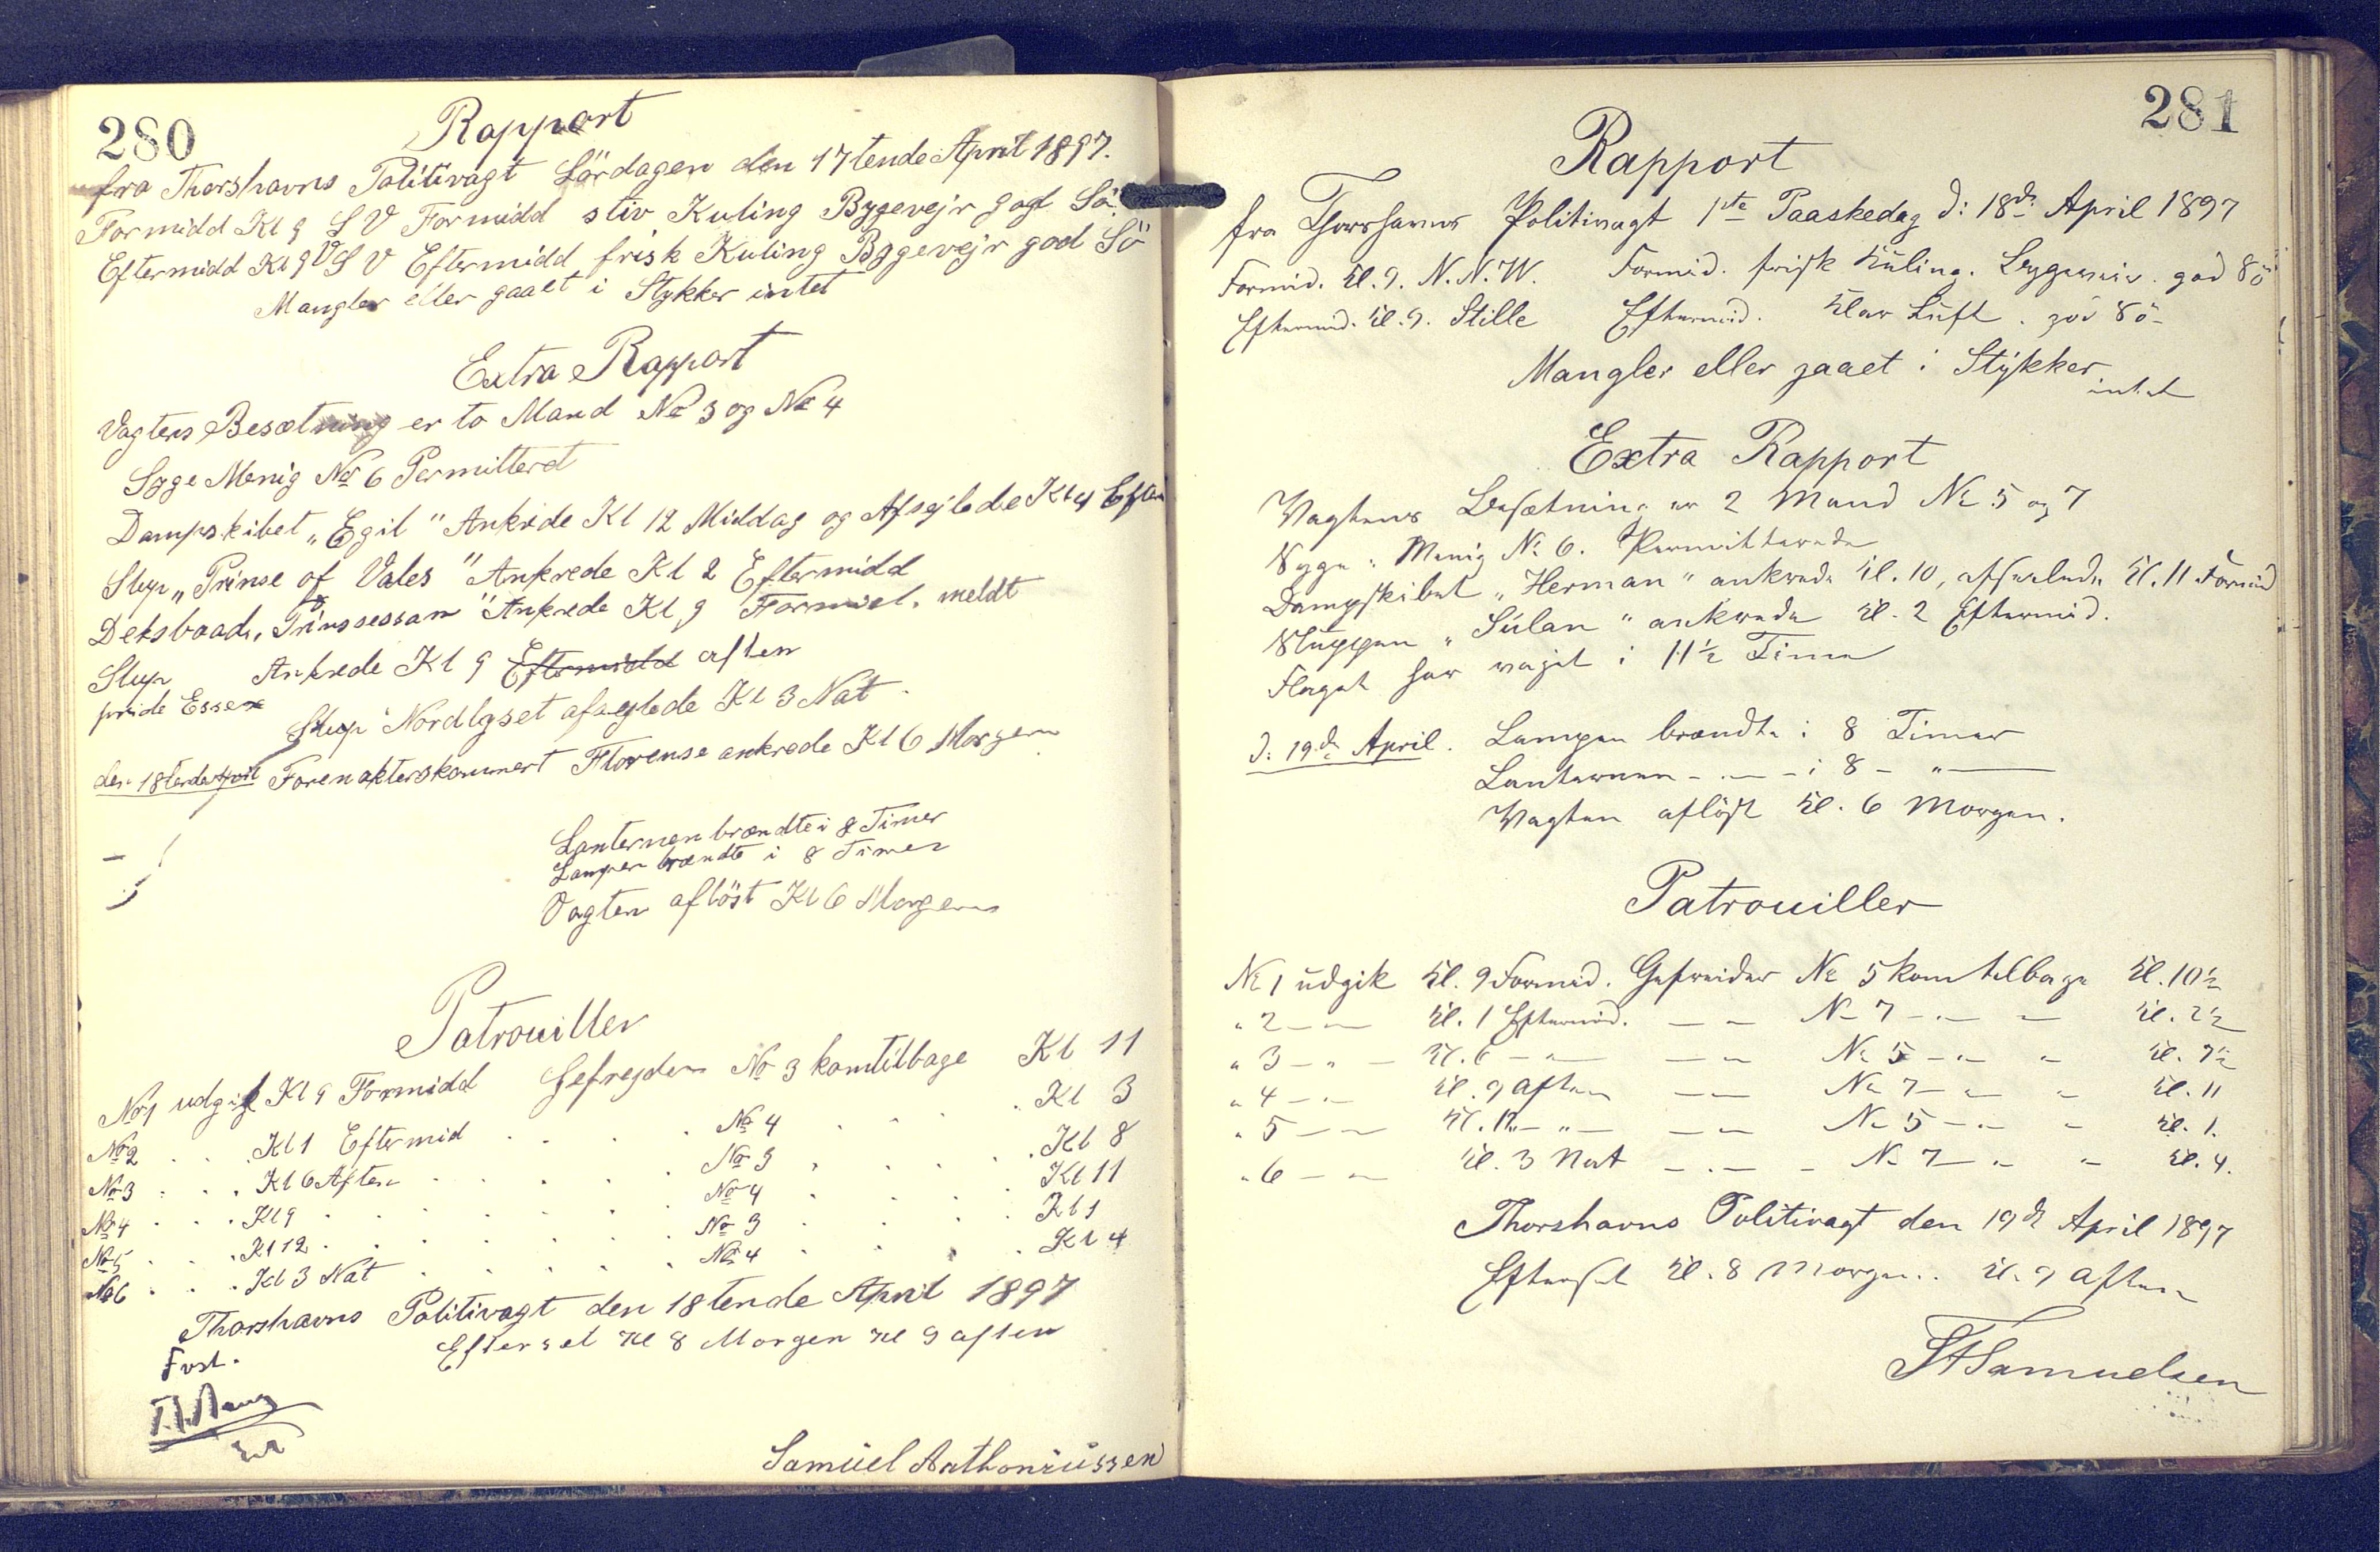 280
Rapport
fra Thorshavns Politivagt Lördagen den 17tende April 1897.
Formidd Kl 9 S V Formidd stiv Kuling Bygevejr god Sö.
Eftermidd Kl 9 V S V Eftermidd frisk Kuling Byggevejr god Sö
Mangler eller gaaet i Stykker intet
Extra Rapport
Vagtens Besætning er to Mand No 3 og No 4
Syge Menig No 6 Permitteret
Dampskibet „Egil" Ankrede Kl 12 Middag og Afsejlede Kl 4 Efterm
Slup „Prinse of Vales" Ankrede Kl 2 Eftermidd
Deksbaad „Prinssessan" Ankrede Kl 9 Formid. meldt
Slup Ankrede Kl 9 Eftermidd aften
pride Essex
Slup Nordlyset afsejlede Kl 3 Nat
den 18tende April Forenakterskonnert Florense ankrede Kl 6 Morgen
Lanternen brændte i 8 Timer
Lampen brændte i 8 Timer
Vagten aflöst Kl 6 Morgen
Patrouiller
No 1 udgik Kl 9 Formidd Gefrejder No 3 kom tilbage Kl 11
No 2 . . . Kl 1 Eftermid . . . . No 4 . . . Kl 3
No 3 . . . Kl 6 Aften . . . . No 3 . . . Kl 8
No 4 . . . Kl 9 . . . . No 4 . . . Kl 11
No 5 . . . Kl 12 . . . . No 3 . . . Kl 1
No 6 . . . Kl 3 Nat . . . . No 4 . . . Kl 4
Thorshavns Politivagt den 18tende April 1897
Efterset Kl 8 Morgen Kl 9 aften
Samüel Anthoniüssen
281
Rapport
fra Thorshavns Politivagt 1ste Paaskedag d: 18de April 1897
Formid. Kl. 9. N.N.W. Formid. frisk Küling. Byggeveir. god Sö
Eftermid. Kl. 9. Stille Eftermid. Klar Lüft. god Sö-
Mangler eller gaaet i Stÿkker intet
Extra Rapport
Vagtens Besætning er 2 Mand No 5 og 7
Syge: Menig No 6. Permitterede
Dampskibet „Herman" ankrede Kl. 10, afseilede Kl. 11 Formid
Sluppen „Súlan" ankrede Kl. 2 Eftermid.
Flaget har vajet i 11½ Time
d: 19de April. Lampen brændte i 8 Timer
Lanternen - " - i 8 - " -
Vagten aflöst Kl. 6 Morgen.
Patrouiller
No 1 üdgik Kl. 9 Formid. Gefreider No 5 kom tilbage Kl. 10½
" 2 - " - Kl. 1 Eftermid. - " - No 7 - " - " Kl. 2½
" 3 - " - Kl. 6 - " - - " - No 5 - " - " Kl. 7½
" 4 - " - Kl. 9 Aften - " - No 7 - " - " Kl. 11
" 5 - " - Kl. 12 - " - - " - No 5 - " - " Kl. 1.
" 6 - " - Kl. 3 Nat - " - No 7 - " - " Kl. 4.
Thorshavns Politivagt den 19de April 1897
Efterset Kl. 8 Morgen. Kl. 9 Aften
Samuelsen